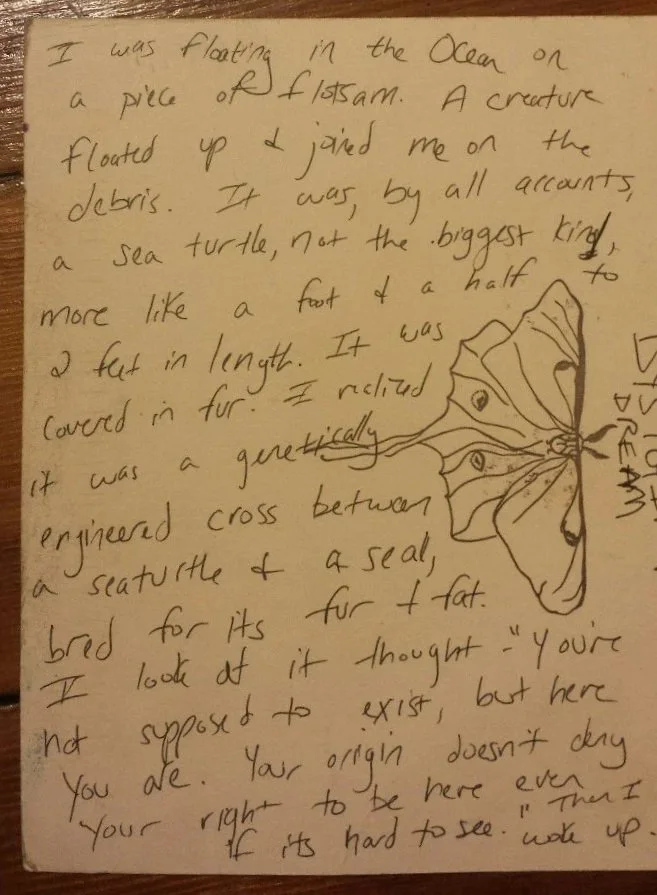 I was floating in the Ocean on
a piece of flotsam. A creature
floated up & joined me on the
debris. It was, by all accounts,
a sea turtle, not the biggest kind,
more like a foot & a half to
2 feet in length. It was
covered in fur. I realized
it was a genetically
engineered cross between
a seaturtle & a seal,
bred for its fur & fat.
I look at it thought - "You're
not supposed to exist, but here
you are. Your origin doesn't deny
your right to be here even
if its hard to see." Then I
woke up.
DREAM